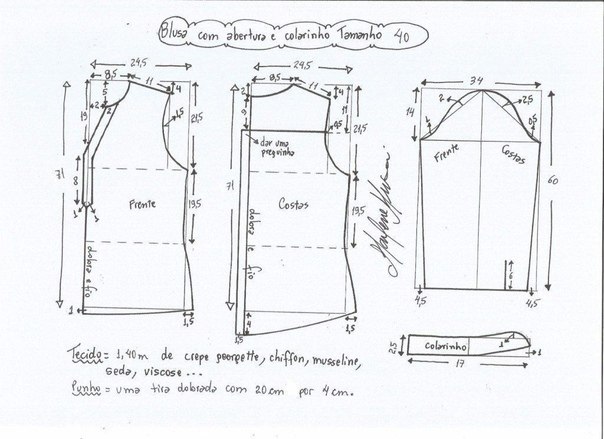 Blusa com abertura e colarinho Tamanho 40
24,5
8,5
11
4
5
2
2
19
1,5
21,5
71
8
1
1
Frente
19,5
dobra e fio
1
1,5
24,5
8,5
11
4
2
9
11
0,5
21,5
dar uma preguinha
71
Costas
19,5
dobra e fio
1,5
4
1,5
34
14
2
2,5
1
0,5
Frente
Costas
60
6
4,5
4,5
2,5
colarinho
1
1
17
Tecido = 1,40m de crepe georgette, chiffon, musseline,
seda, viscose ...
Punho = uma tira dobrada com 20 cm por 4 cm.